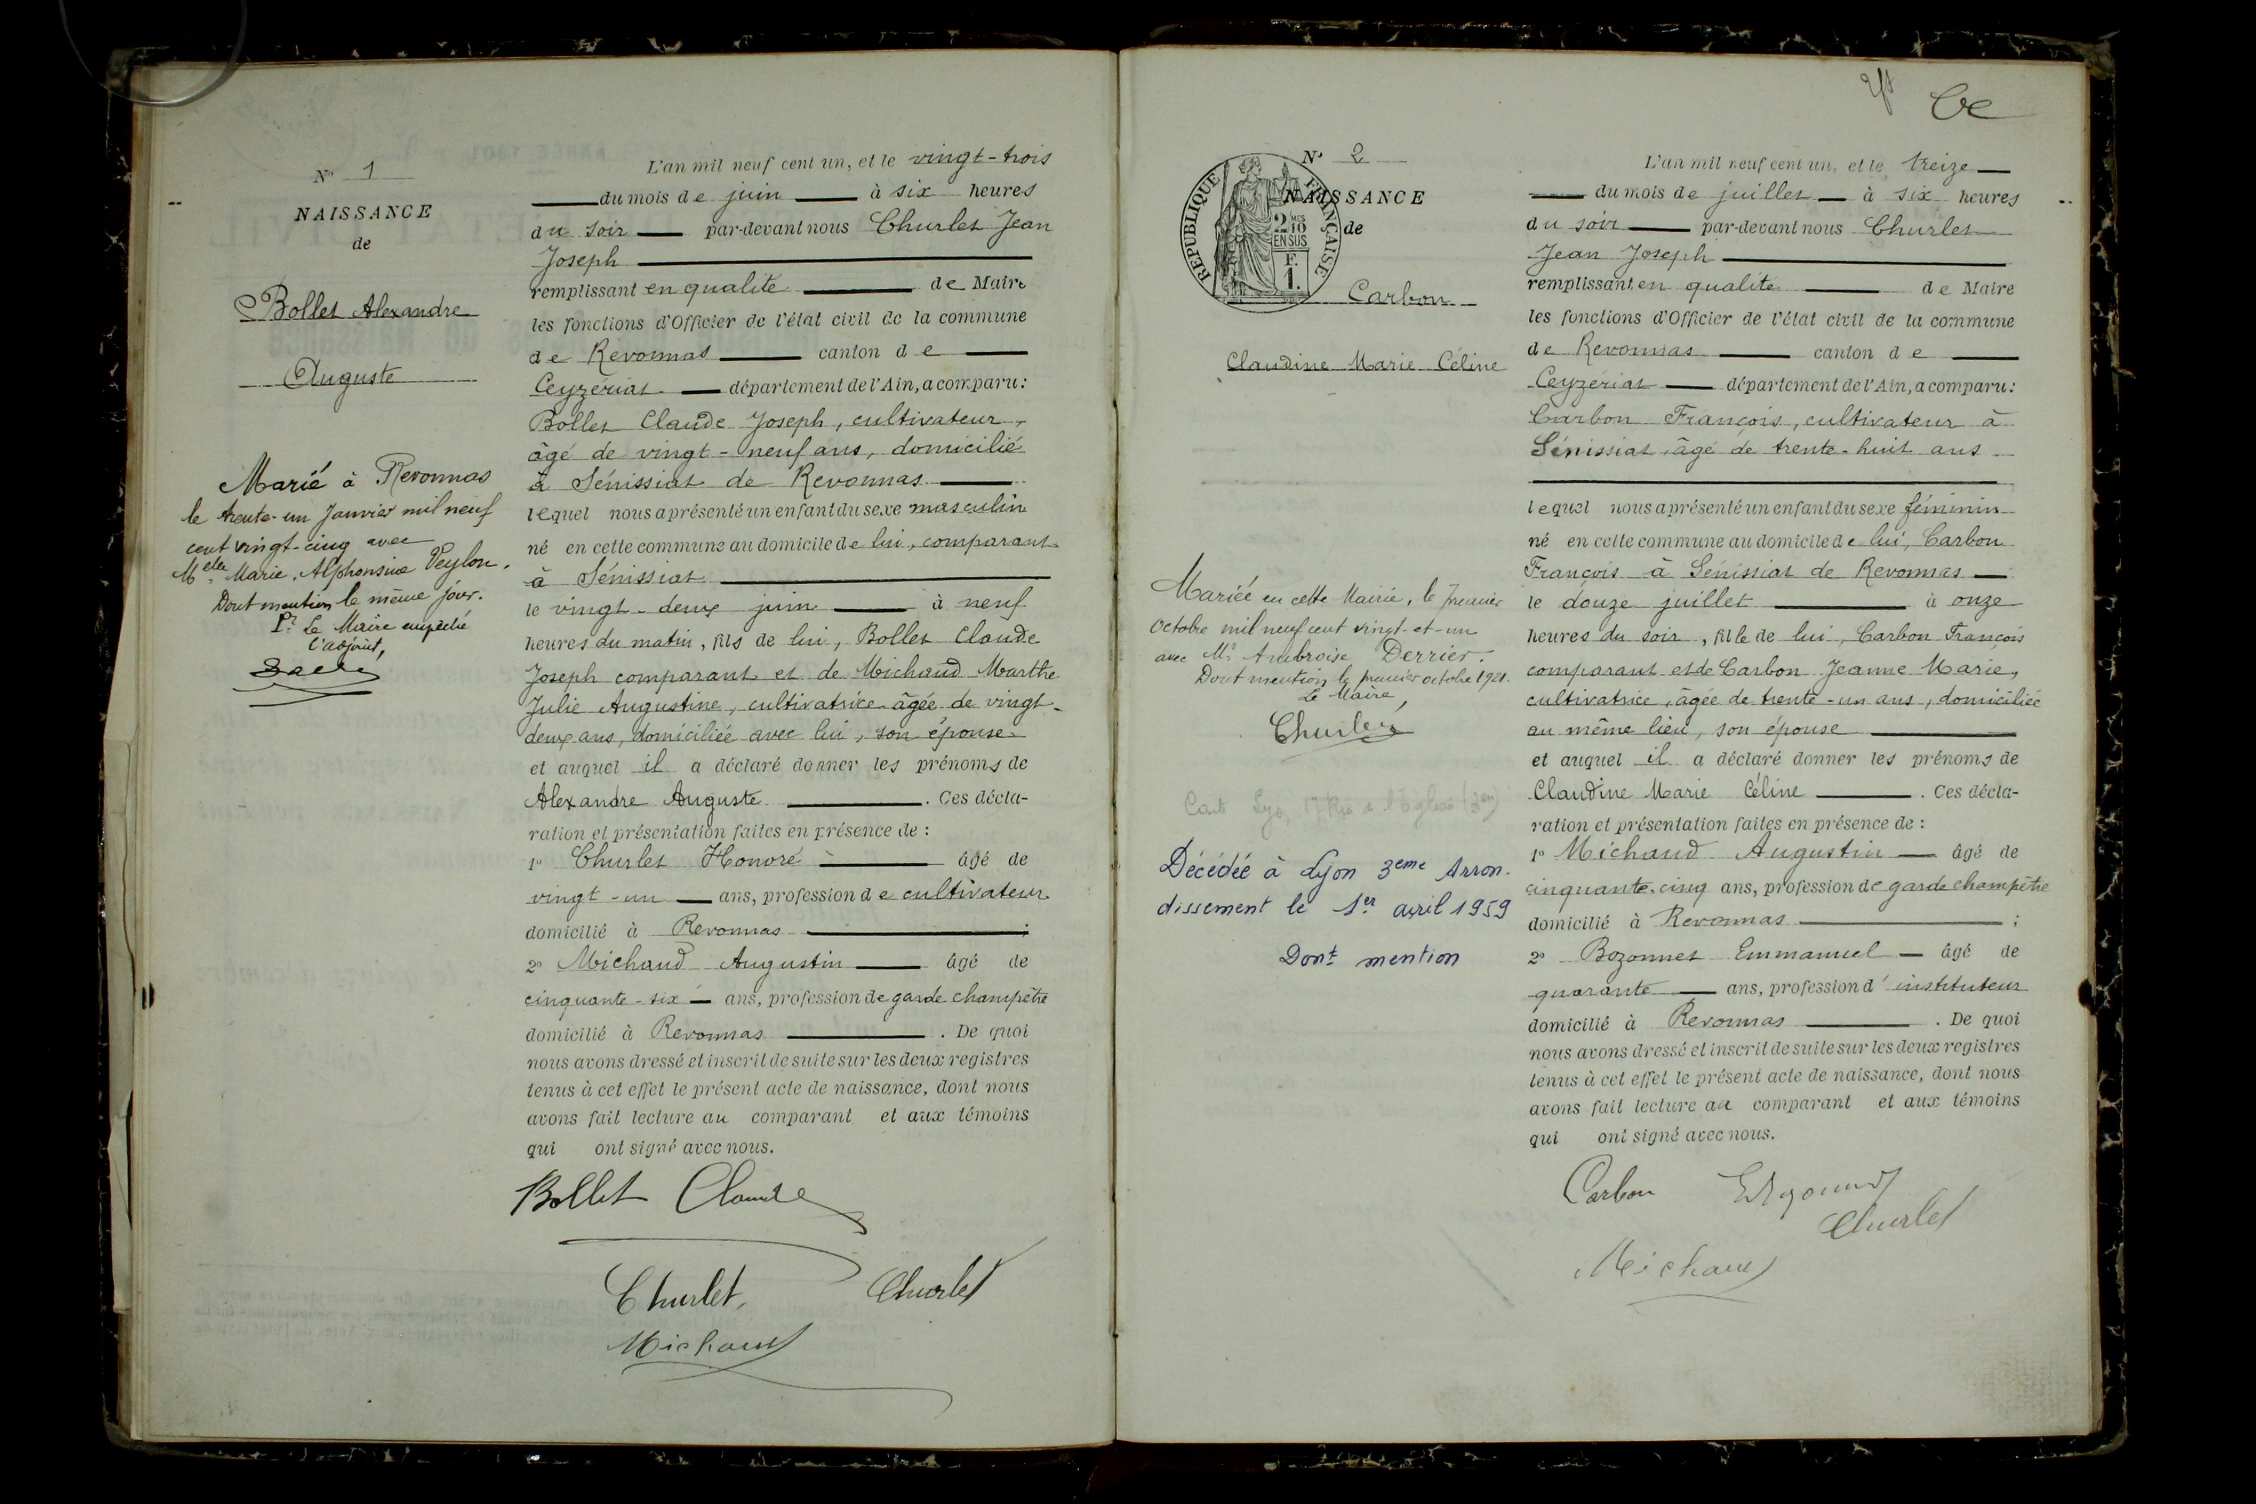 N° 1
NAISSANCE
de
Bollet Alexandre
Auguste
Marié à Revonnas
le trente-un Janvier mil neuf
cent vingt-cinq avec
Melle Marie, Alphonsine Veylon.
Dont mention le même jour.
Pr Le Maire empêché
L'adjoint,
L'an mil neuf cent un, et le vingt-trois
du mois de juin à six heures
du soir par-devant nous Churlet Jean
Joseph
remplissant en qualité de Maire
les fonctions d'Officier de l'état civil de la commune
de Revonnas canton de
Ceyzériat département de l'Ain, a comparu:
Bollet Claude Joseph, cultivateur,
âgé de vingt-neuf ans, domicilié
à Sénissiat de Revonnas
lequel nous a présenté un enfant du sexe masculin
né en cette commune au domicile de lui, comparant
à Sénissiat
le vingt-deux juin à neuf
heures du matin, fils de lui, Bollet Claude
Joseph comparant et de Michaud Marthe
Julie Augustine, cultivatrice âgée de vingt-
deux ans, domiciliée avec lui, son épouse
et auquel il a déclaré donner les prénoms de
Alexandre Auguste. Ces décla-
ration et présentation faites en présence de :
1° Churlet Honoré âgé de
vingt-un ans, profession de cultivateur
domicilié à Revonnas ;
2° Michaud Augustin âgé de
cinquante-six ans, profession de garde champêtre
domicilié à Revonnas. De quoi
nous avons dressé et inscrit de suite sur les deux registres
tenus à cet effet le présent acte de naissance, dont nous
avons fait lecture au comparant et aux témoins
qui ont signé avec nous.
Bollet Claude
Churlet, Churlet
Michaud
N° 2
NAISSANCE
de
RÉPUBLIQUE FRANÇAISE
2 MES
10
EN SUS
F.
1.
Carbon
Claudine Marie Céline
Mariée en cette Mairie, le premier
octobre mil neuf cent vingt-et-un
avec Mr Ambroise Derrier.
Dont mention le premier octobre 1921.
Le Maire
Churlet
Décédée à Lyon 3eme Arron-
dissement le 1er avril 1959
Dont mention
L'an mil neuf cent un, et le treize
du mois de juillet à six heures
du soir par-devant nous Churlet
Jean Joseph
remplissant en qualité de Maire
les fonctions d'Officier de l'état civil de la commune
de Revonnas canton de
Ceyzériat département de l'Ain, a comparu:
Carbon François, cultivateur à
Sénissiat, âgé de trente-huit ans
lequel nous a présenté un enfant du sexe féminin
né en cette commune au domicile de lui, Carbon
François à Sénissiat de Revonnas
le douze juillet à onze
heures du soir, fille de lui, Carbon François
comparant et de Carbon Jeanne Marie,
cultivatrice, âgée de trente-un ans, domiciliée
au même lieu, son épouse
et auquel il a déclaré donner les prénoms de
Claudine Marie Céline. Ces décla-
ration et présentation faites en présence de :
1° Michaud Augustin âgé de
cinquante-cinq ans, profession de garde champêtre
domicilié à Revonnas ;
2° Bozonnet Emmanuel âgé de
quarante ans, profession d'instituteur
domicilié à Revonnas. De quoi
nous avons dressé et inscrit de suite sur les deux registres
tenus à cet effet le présent acte de naissance, dont nous
avons fait lecture au comparant et aux témoins
qui ont signé avec nous.
Carbon
Churlet
Michaud